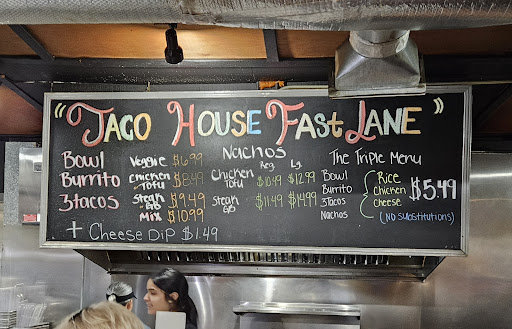 "Taco House Fast Lane"
Bowl
Burrito
3tacos
Veggie $6.99
Chicken Tofu $8.49
Steak $9.49
Mix $10.99
Nachos
Reg. Lg.
Chicken Tofu $10.49 $12.99
Steak $11.49 $14.99
The Triple Menu
Bowl
Burrito
3Tacos
Nachos
Rice
Chicken
Cheese
$5.49
(No substitutions)
+ Cheese Dip $1.49